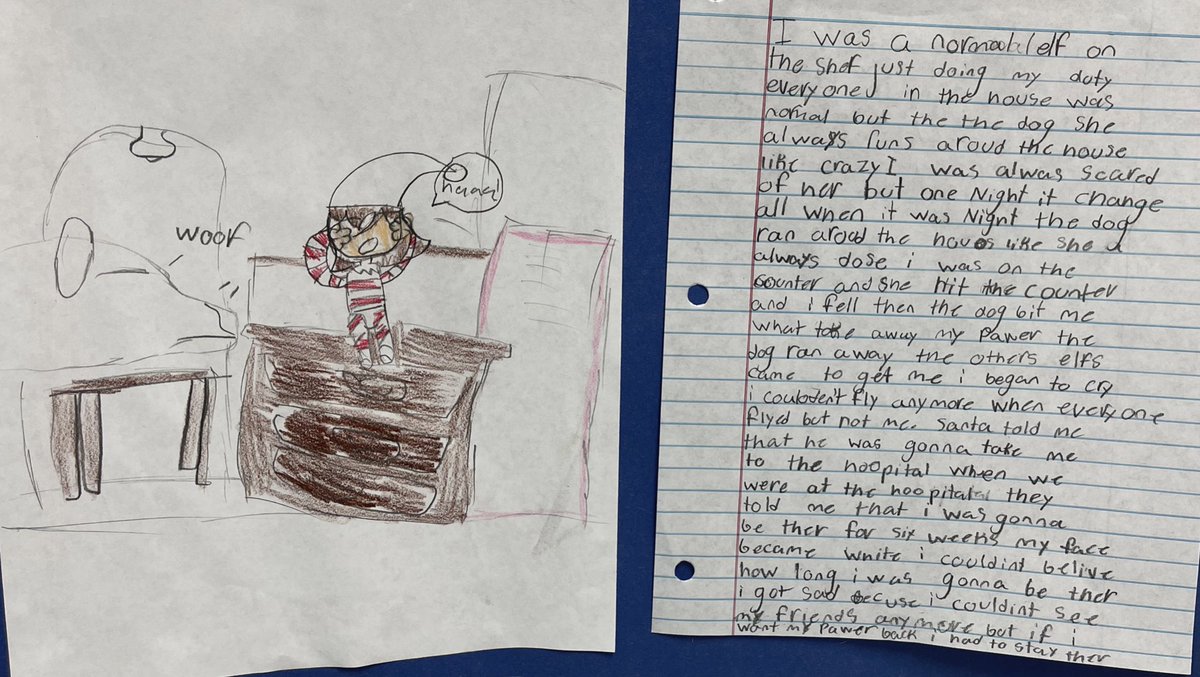 woof
haaa!
I was a normal elf on
the shef just doing my duty
everyone in the house was
normal but the the dog she
always runs aroud the house
like crazy I was alwas scared
of her but one Night it change
all when it was Night the dog
ran aroud the houes like she
always dose i was on the
counter and she hit the counter
and i fell then the dog bit me
what take away my Pawer the
dog ran away the others elfs
came to get me i began to cry
i couldent fly anymore when everyone
flyed but not me. Santa told me
that he was gonna take me
to the hospital when we
were at the hoopital they
told me that i was gonna
be ther for six weeks my face
became white i couldint belive
how long i was gonna be ther
i got sad becuse i couldint see
my friends anymore but if i
want my Pawer back i had to stay ther